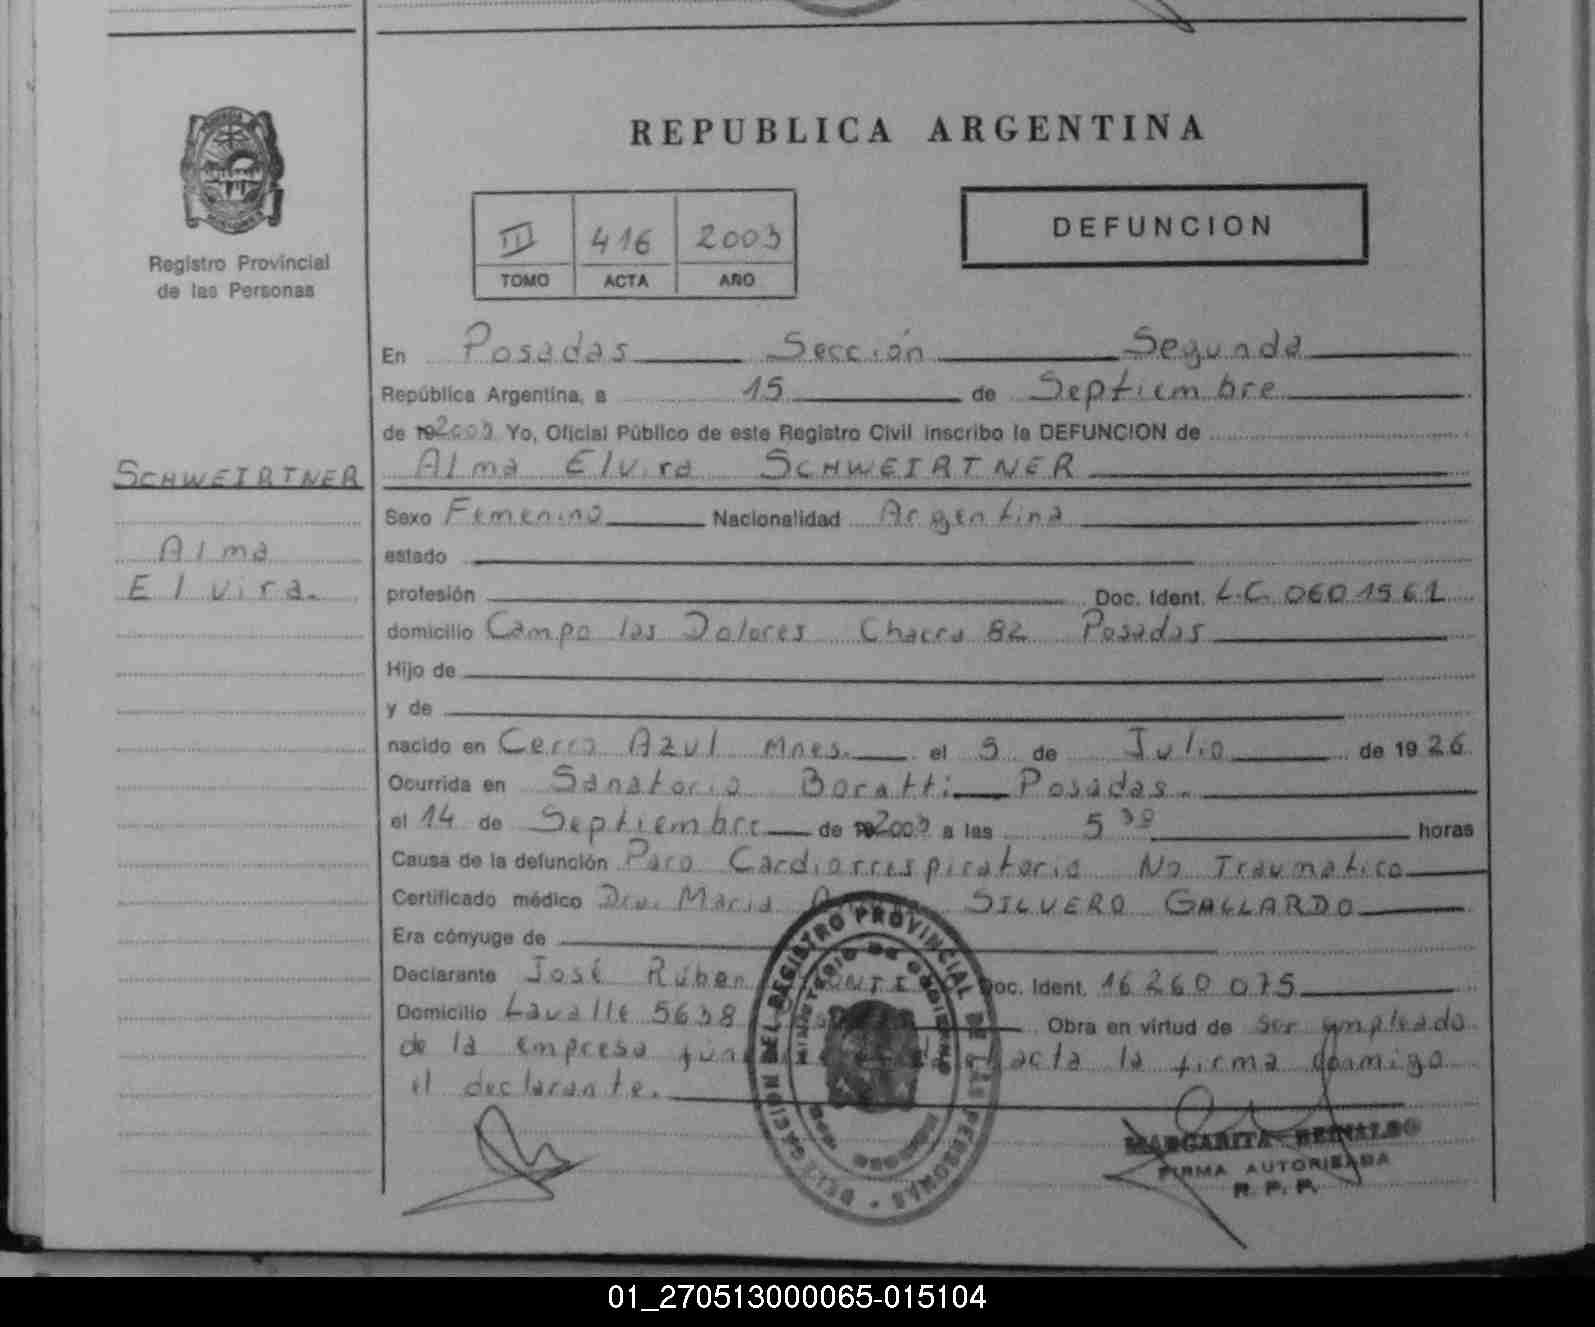 REPUBLICA ARGENTINA
Registro Provincial
de las Personas
III 416 2003
TOMO ACTA AÑO
DEFUNCION
En Posadas Sección Segunda
República Argentina, a 15 de Septiembre
de 2003 Yo, Oficial Público de este Registro Civil inscribo la DEFUNCION de
SCHWEIRTNER
Alma
Elvira.
Alma Elvira SCHWEIRTNER
Sexo Femenino Nacionalidad Argentina
estado
profesión Doc. Ident. L.C. 0601561
domicilio Campo las Dolores Chacra 82 Posadas
Hijo de
y de
nacido en Cerro Azul Mnes. el 5 de Julio de 1926
Ocurrida en Sanatorio Boratti Posadas.
el 14 de Septiembre de 2003 a las 5 30 horas
Causa de la defunción Paro Cardiorrespiratorio No Traumatico
Certificado médico Dra. Maria SILVERO GALLARDO
Era cónyuge de
Declarante José Ruben Doc. Ident. 16260075
Domicilio Lavalle 5638 Obra en virtud de ser empleado
de la empresa acta la firma conmigo
el declarante.
DELEGACION DEL REGISTRO PROVINCIAL DE LAS PERSONAS
MINISTERIO DE GOBIERNO
MARGARITA
FIRMA AUTORIZADA
R. P. P.
01_270513000065-015104